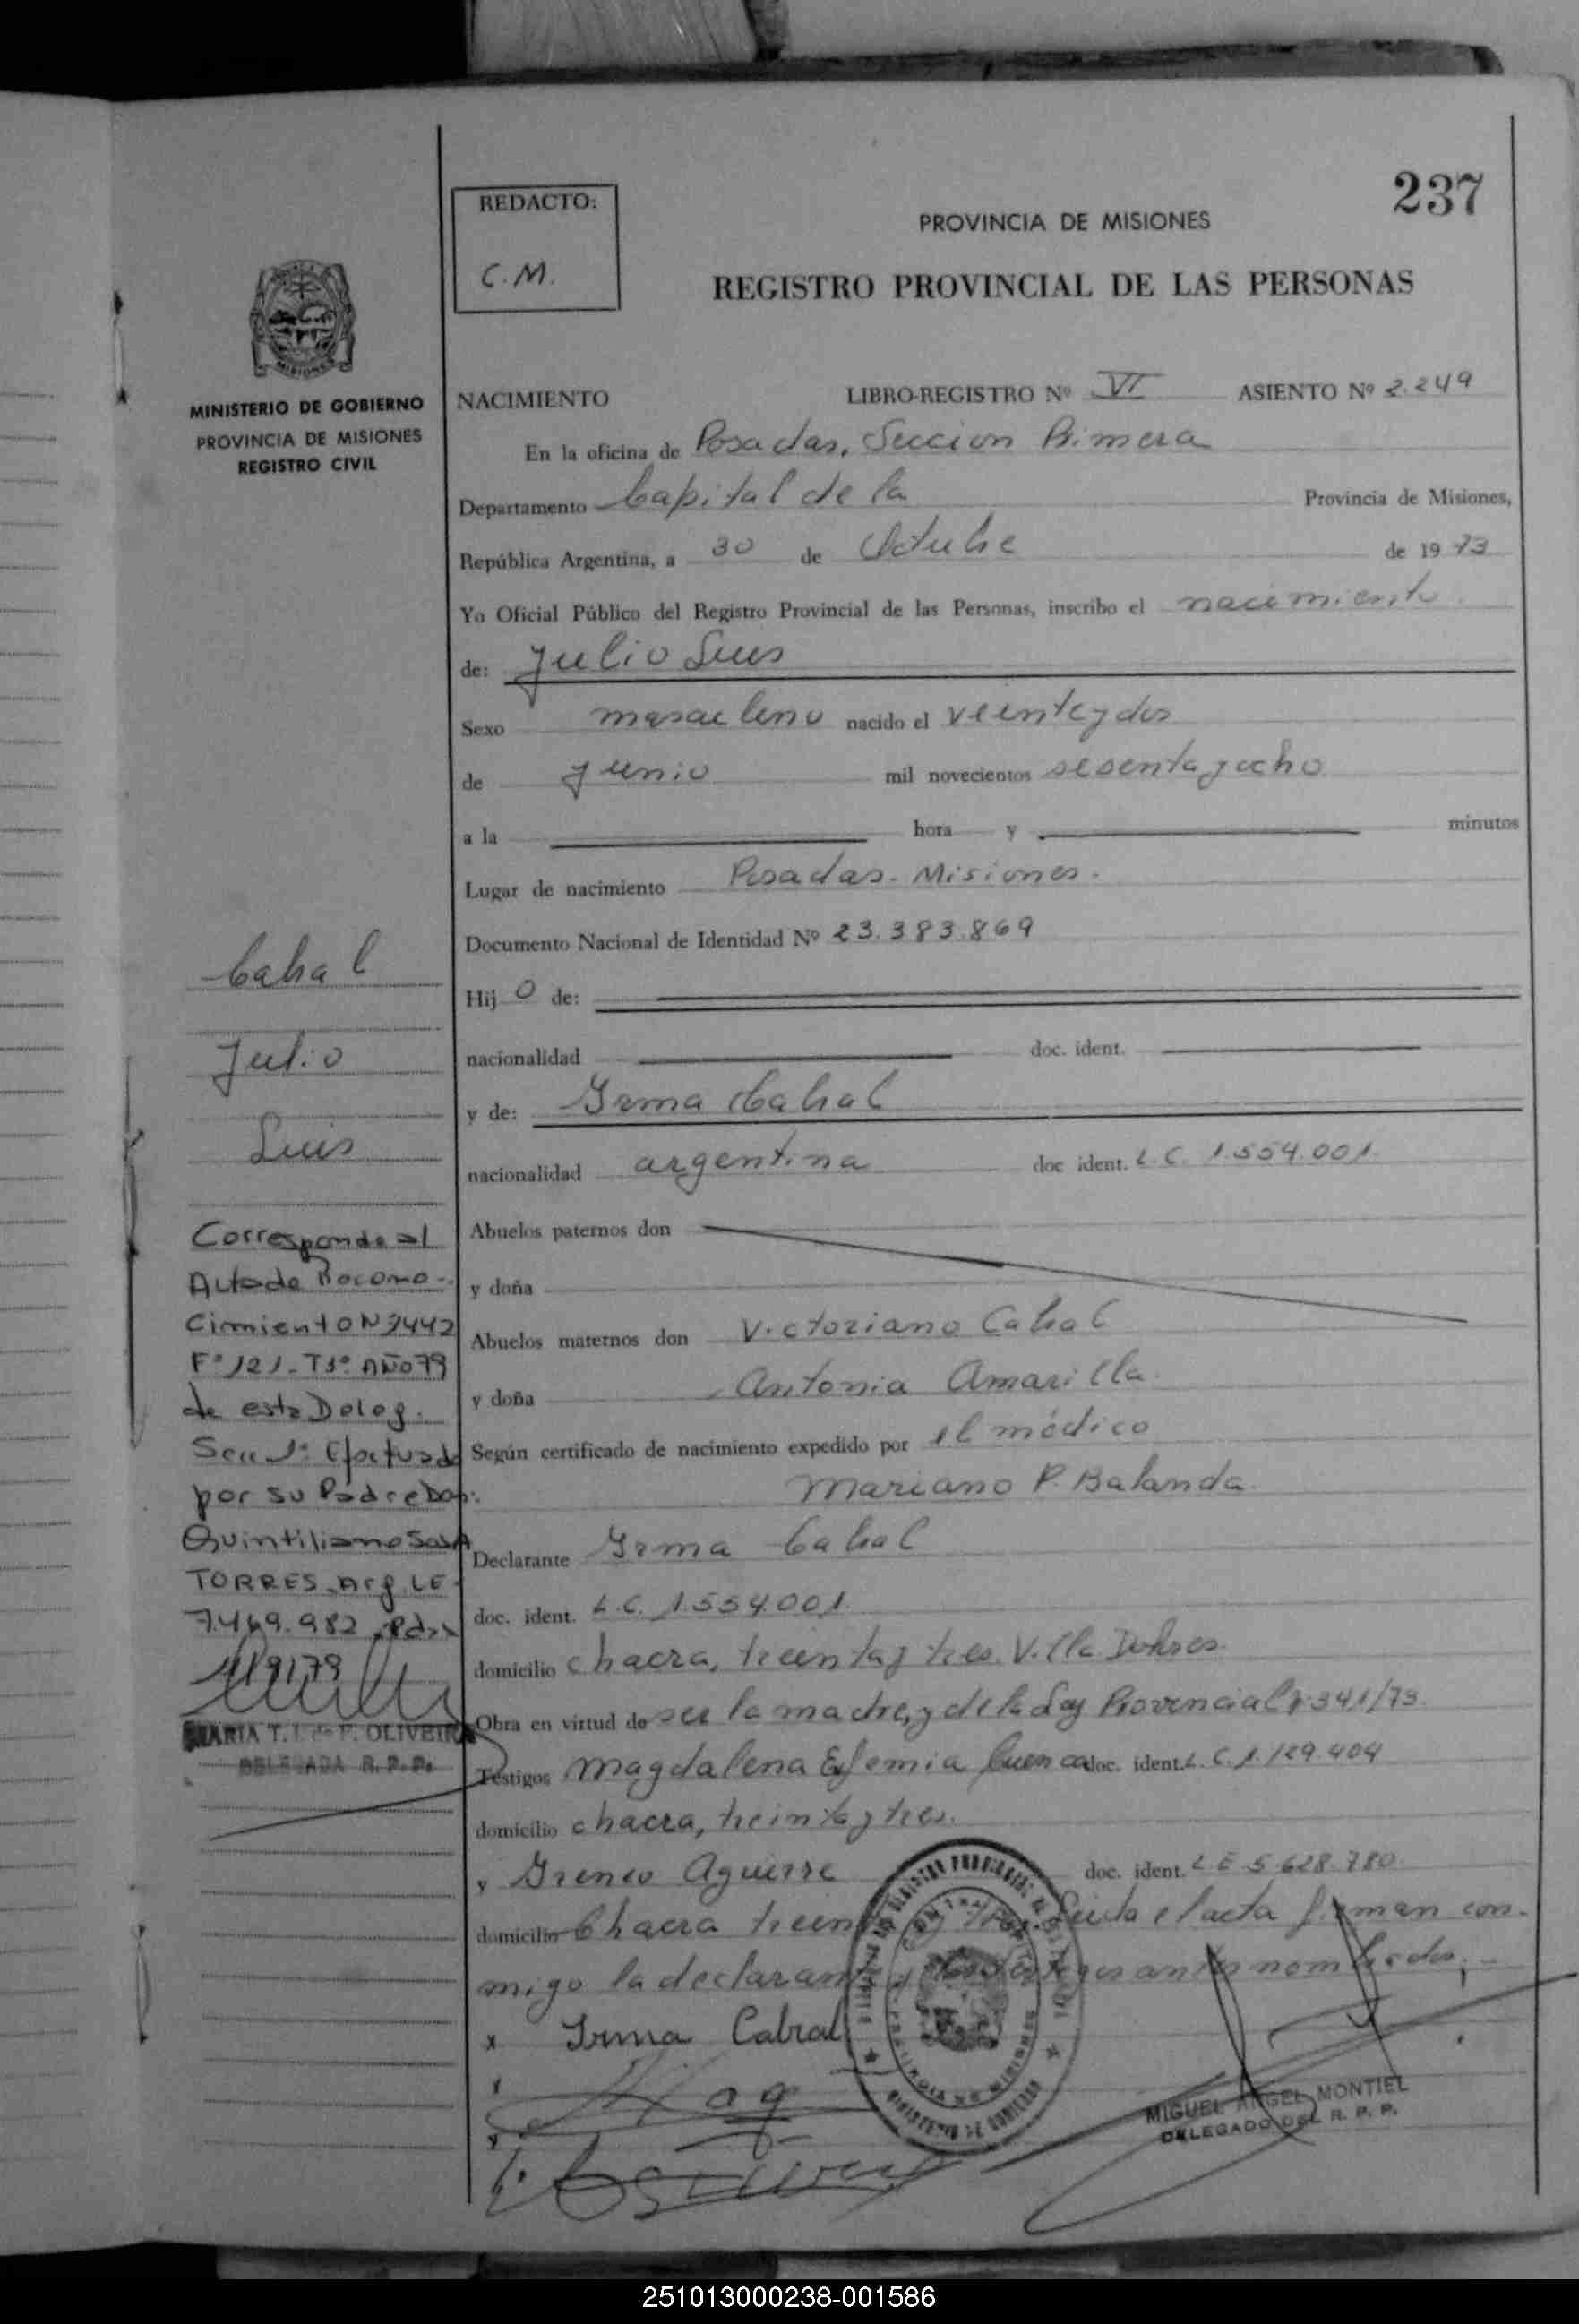 237
REDACTO:
C.M.
PROVINCIA DE MISIONES
REGISTRO PROVINCIAL DE LAS PERSONAS
MISIONES
MINISTERIO DE GOBIERNO
PROVINCIA DE MISIONES
REGISTRO CIVIL
NACIMIENTO LIBRO-REGISTRO Nº VI ASIENTO Nº 2.249
En la oficina de Posadas, Seccion Primera
Departamento Capital de la Provincia de Misiones,
República Argentina, a 30 de Octubre de 1973
Yo Oficial Público del Registro Provincial de las Personas, inscribo el nacimiento
de: Julio Luis
Sexo masculino nacido el veinte y dos
de junio mil novecientos sesenta y ocho
a la hora y minutos
Lugar de nacimiento Posadas - Misiones.
Documento Nacional de Identidad Nº 23.383.869
Hijo de:
nacionalidad doc. ident.
y de: Irma Cabral
nacionalidad argentina doc ident. L.C. 1.554.001.
Abuelos paternos don
y doña
Abuelos maternos don Victoriano Cabral
y doña Antonia Amarilla.
Según certificado de nacimiento expedido por el médico
Mariano P. Balanda.
Declarante Irma Cabral
doc. ident. L.C. 1.554.001.
domicilio chacra, treinta y tres. Villa Dolores.
Obra en virtud de ser la madre, y de la Ley Provincial 341/73.
Testigos Magdalena Eufemia Cuenca doc. ident. L.C. 1.129.404
domicilio chacra, treinta y tres.
y Ireneo Aguirre doc. ident. L E 5.628.780.
domicilio Chacra treinta y tres. Leida el acta firman con-
migo la declarante y los testigos antes nombrados.-
x Irma Cabral
MIGUEL ANGEL MONTIEL
DELEGADO DEL R. P. P.
Cabral
Julio
Luis
Corresponde al
Acta de Recono-
cimiento Nº 442
Fº 121 - T 1º AÑO 79
de esta Deleg.
Secc 1º Efectuado
por su Padre Don:
Quintiliano SOSA
TORRES - Arg. LE
7.469.982 - Pdas
1/9/79
MARIA T. I. de F. OLIVEIRA
DELEGADA R. P. P.
251013000238-001586